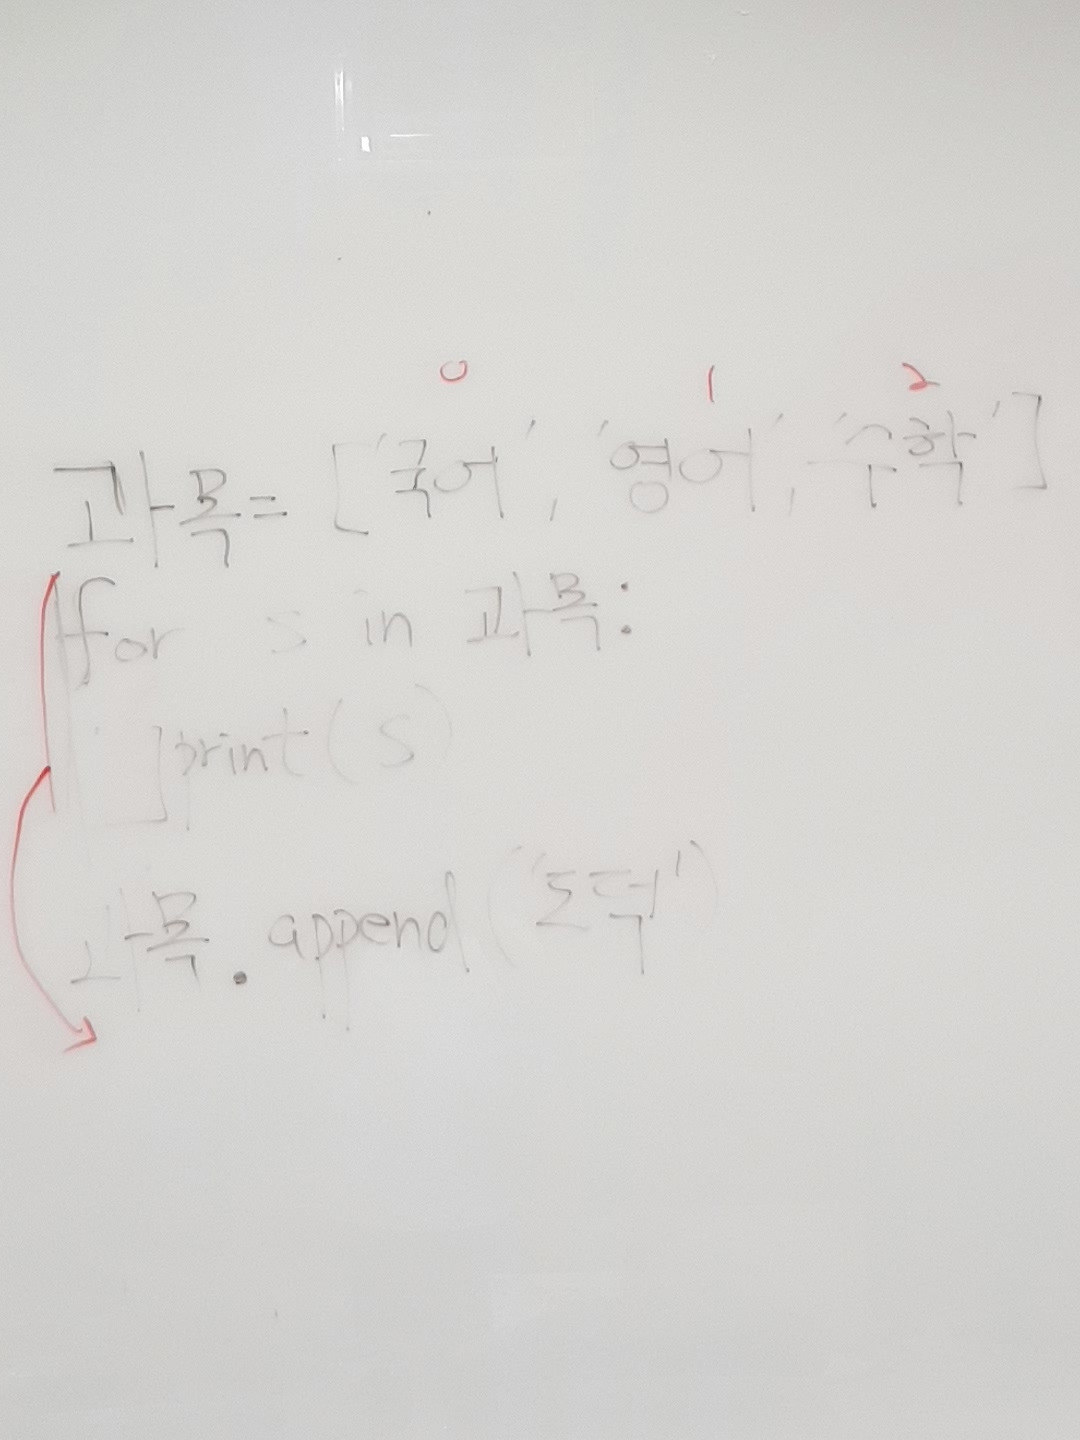 0 1 2
과목= ['국어', '영어', '수학']
for s in 과목:
print(s)
과목.append('도덕')